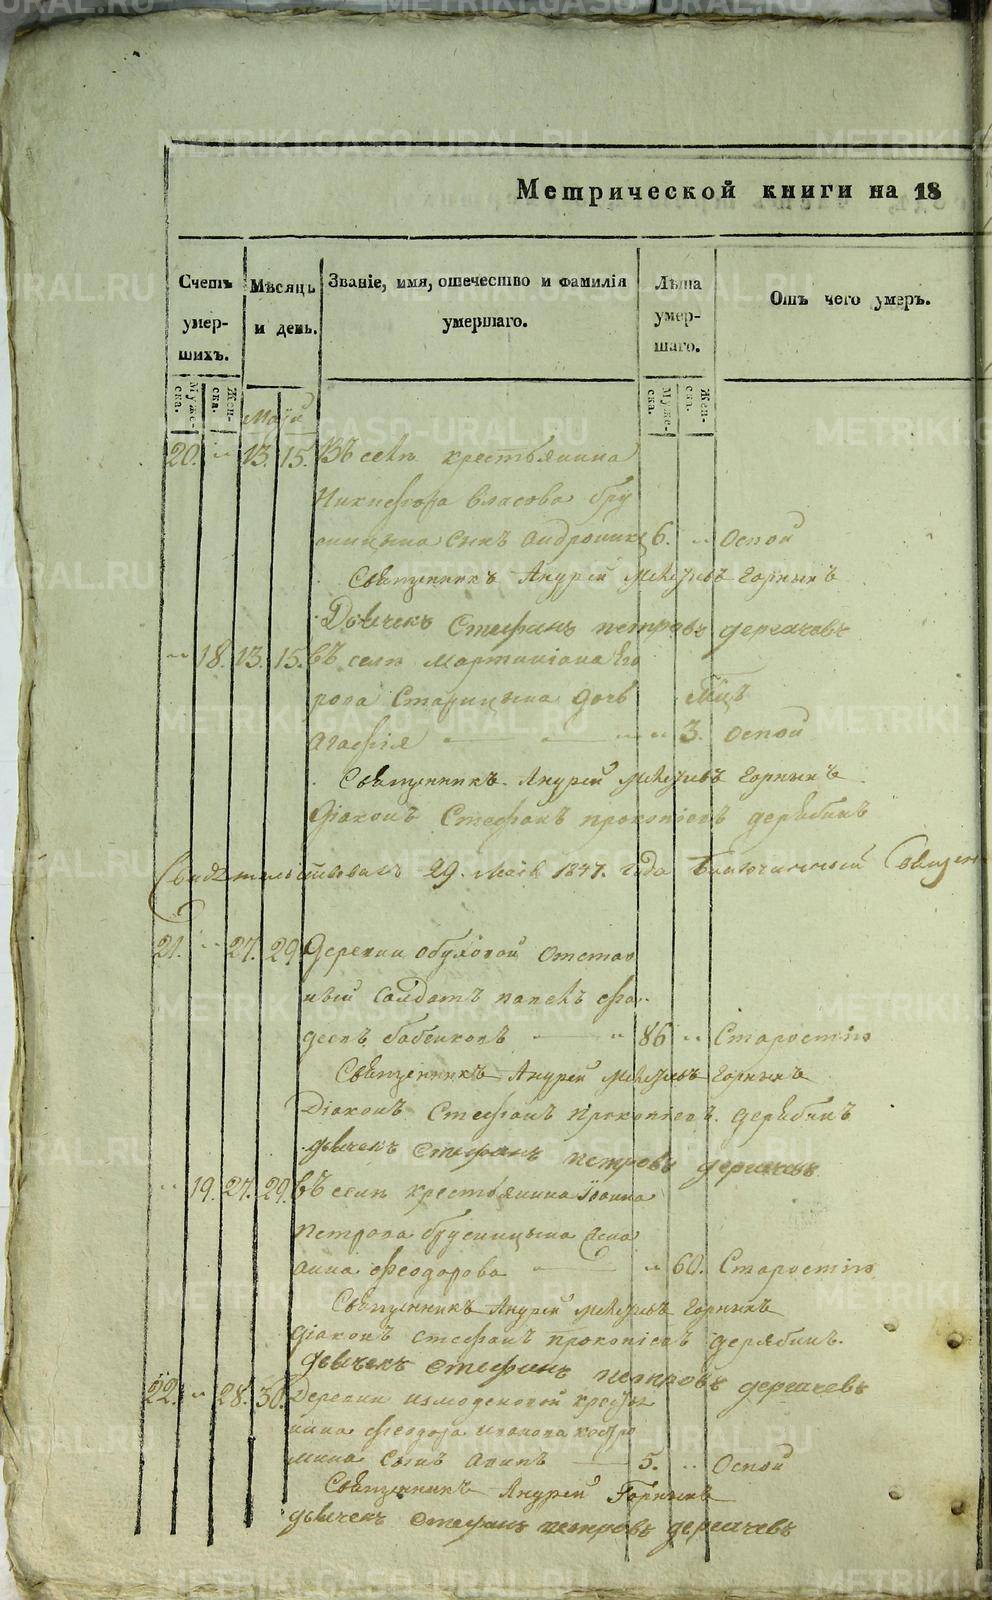 Метрической книги на 18
Счетъ умер-шихъ.
Муже-ска.
Жен-ска.
Мѣсяцъ и день.
Званіе, имя, отечество и фамилія умершаго.
Лѣта умер-шаго.
Муже-ска.
Жен-ска.
Отъ чего умеръ.
Маія
20. " 13. 15. Въ селѣ крестьянина
Никифора Власова Бру
сницына сынъ Андроникъ 6. " Оспой
Священникъ Андрей Горныхъ
Дьячекъ Стефанъ Петровъ Дергачевъ
" 18. 13. 15. Въ селѣ Мартиніана Его
рова Старицына дочь Мцъ
Агафія " 3. Оспой
Священникъ Андрей Горныхъ
Діаконъ Стефанъ Прокопіевъ Дерябинъ
Свидѣтельствовалъ 29. Маія 1847. года Благочинный Священ
21. " 27. 29. Деревни Обуховой отстав
ный солдатъ Павелъ Фа
деевъ Бабенковъ " 86 " Старостію
Священникъ Андрей Горныхъ
Діаконъ Стефанъ Прокопіевъ Дерябинъ
Дьячекъ Стефанъ Петровъ Дергачевъ
" 19. 27. 29. Въ селѣ крестьянина Іоанна
Петрова Брусницына жена
Анна Феодорова " 60. Старостію
Священникъ Андрей Горныхъ
Діаконъ Стефанъ Прокопіевъ Дерябинъ.
Дьячекъ Стефанъ Петровъ Дергачевъ
22. " 28. 30. Деревни Измоденовой кресть
янина Феодора Иванова Костро
мина сынъ 5. " Оспой
Священникъ Андрей Горныхъ
Дьячекъ Стефанъ Петровъ Дергачевъ
METRIKI.GASO-URAL.RU